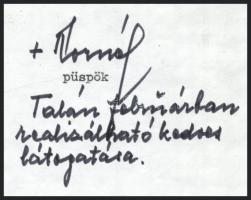 + Kornél
püspök
Talán februárban
realizálható kedves
látogatása.